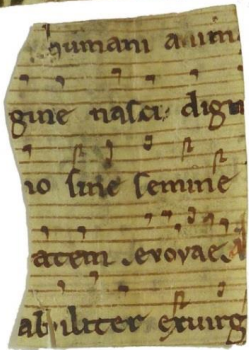 humani anim
gine nasci dign
io sine semine
atem evovae
abiliter ex uirg